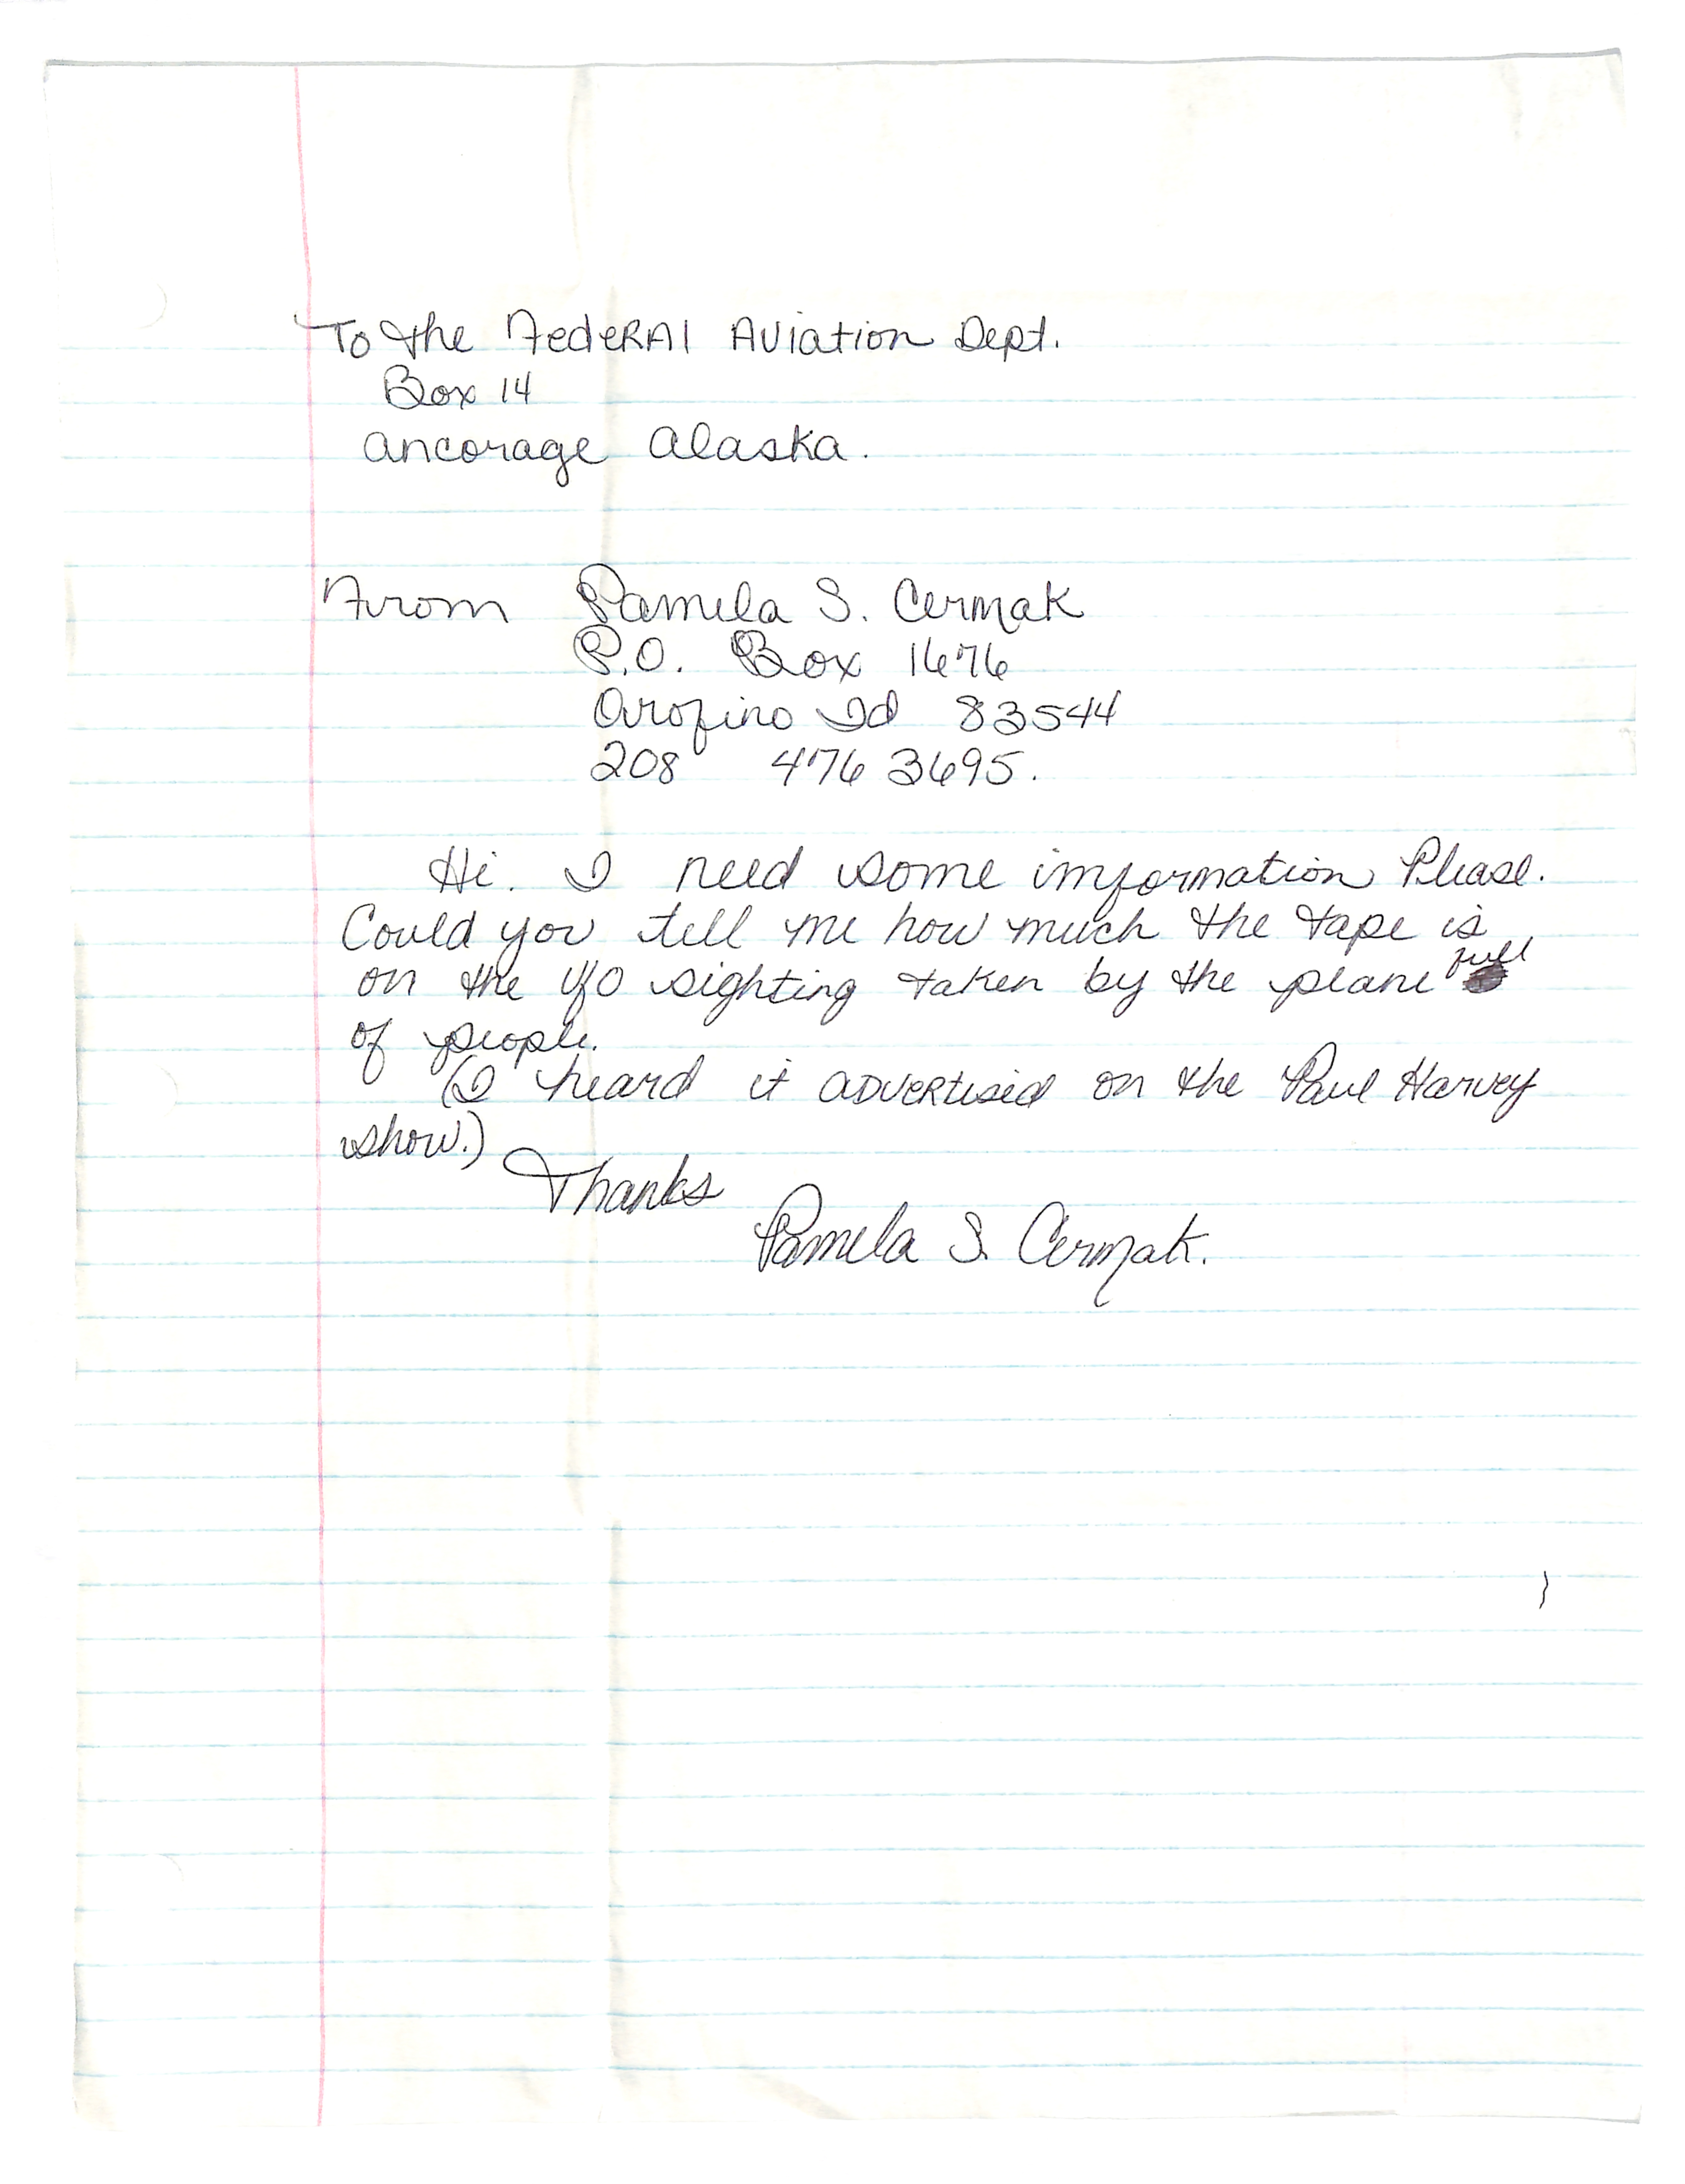 To the FedeRAl AViation Dept.
Box 14
Ancorage Alaska.
From Pamela S. Cermak
P.O. Box 1676
Orofino Id 83544
208 476 3695.
Hi. I need some information Please.
Could you tell me how much the tape is
on the UFO sighting taken by the plane full
of people.
(I heard it ADVERtised on the Paul Harvey
show.)
Thanks
Pamela S. Cermak.